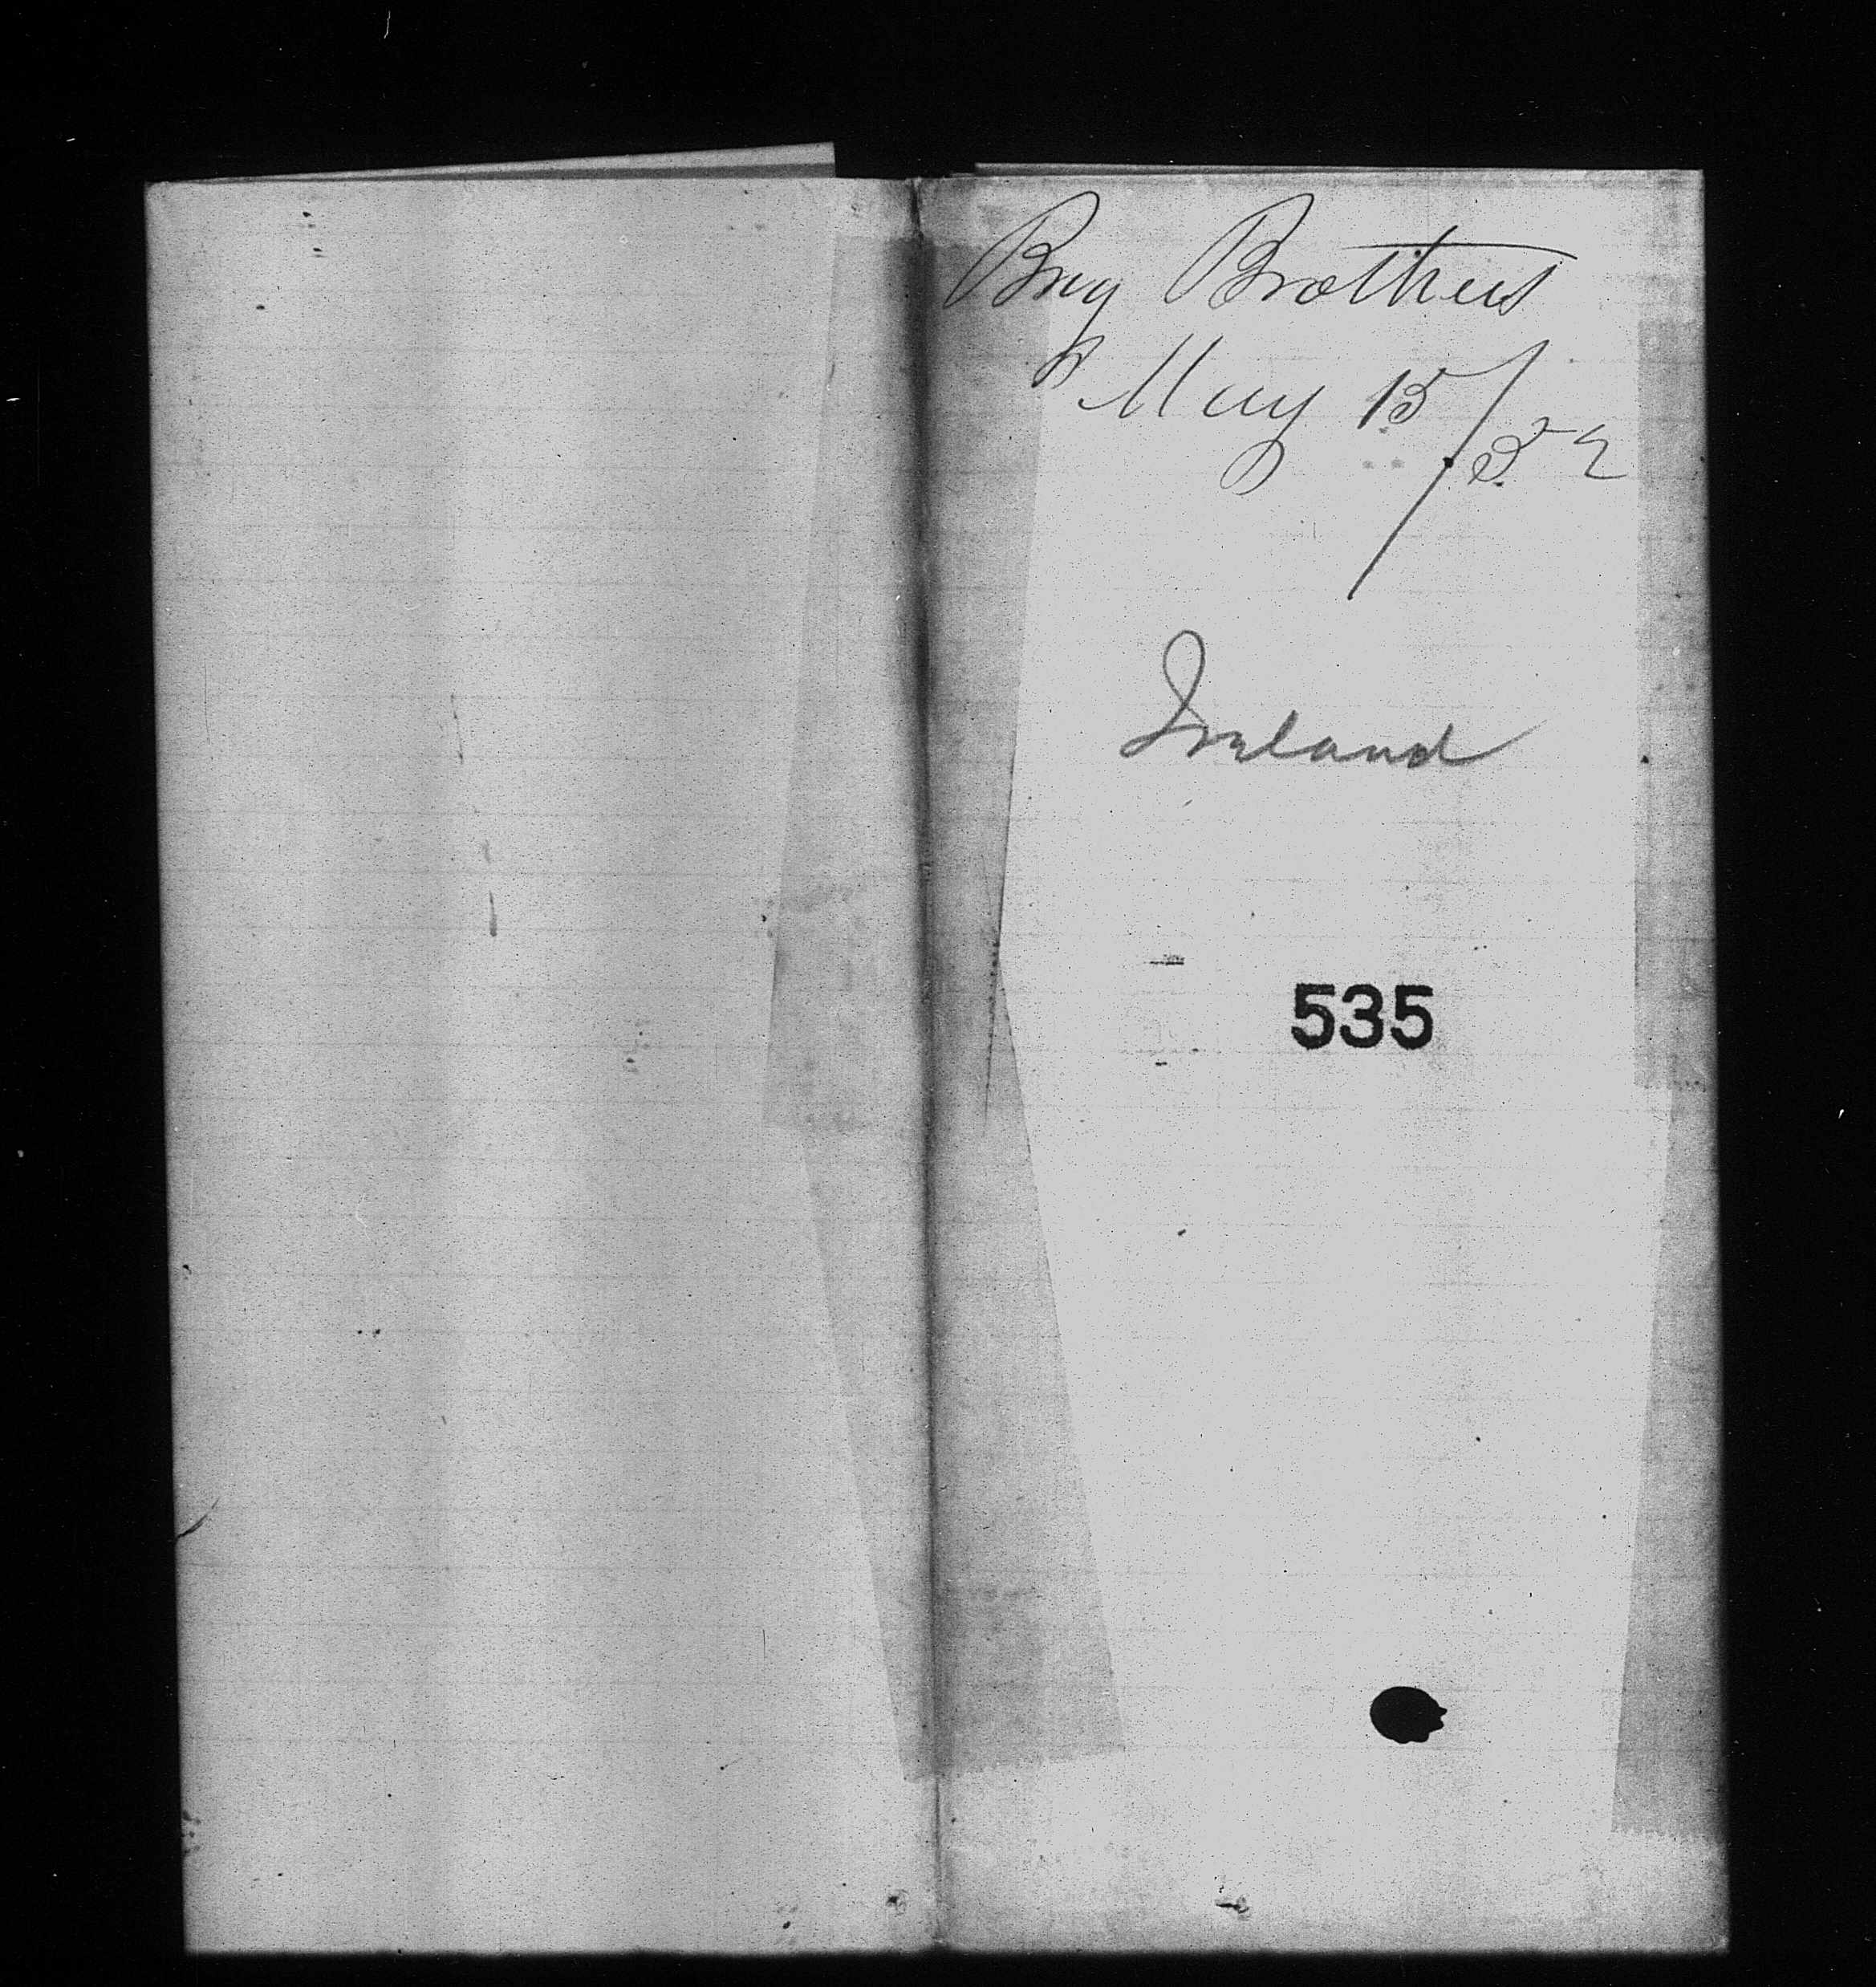 Brig Brothers
May 15/52
Ireland
535